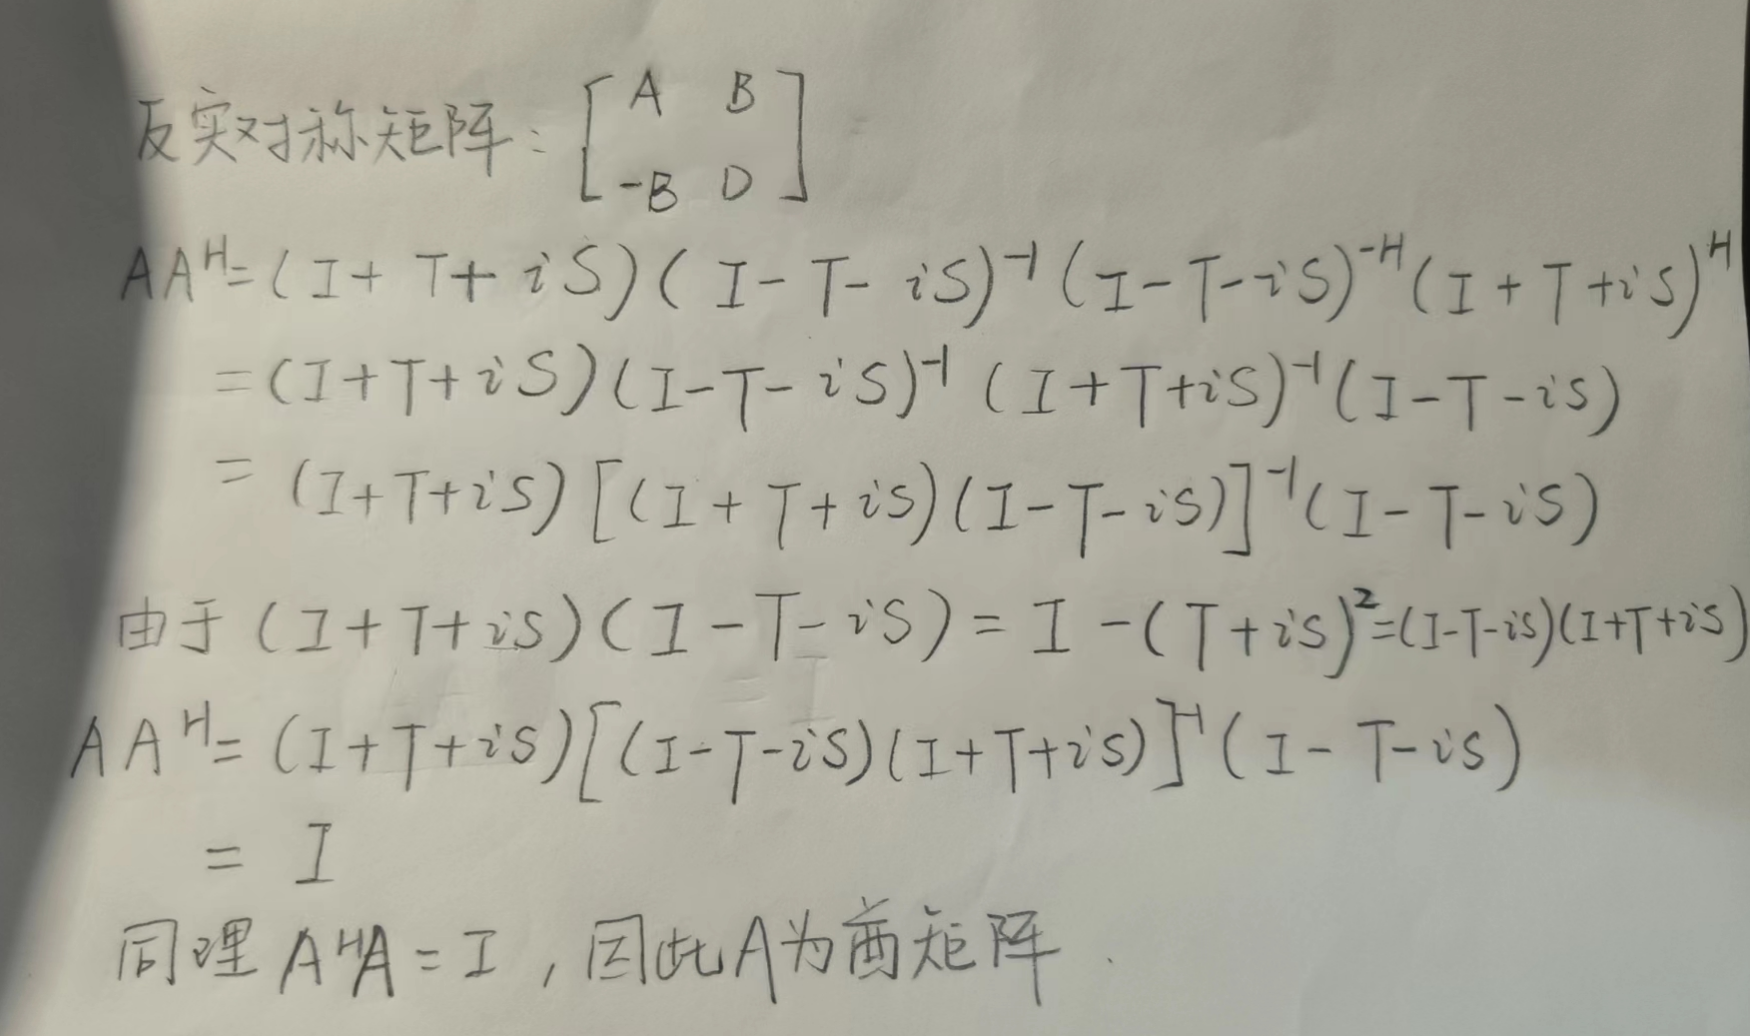 反实对称矩阵: [A B; -B D]
AA^H=(I+T+iS)(I-T-iS)^-1(I-T-iS)^-H(I+T+iS)^H
=(I+T+iS)(I-T-iS)^-1(I+T+iS)^-1(I-T-iS)
=(I+T+iS)[(I+T+iS)(I-T-iS)]^-1(I-T-iS)
由于(I+T+iS)(I-T-iS)=I-(T+iS)^2=(I-T-iS)(I+T+iS)
AA^H=(I+T+iS)[(I-T-iS)(I+T+iS)]^-1(I-T-iS)
=I
同理A^HA=I,因此A为酉矩阵.